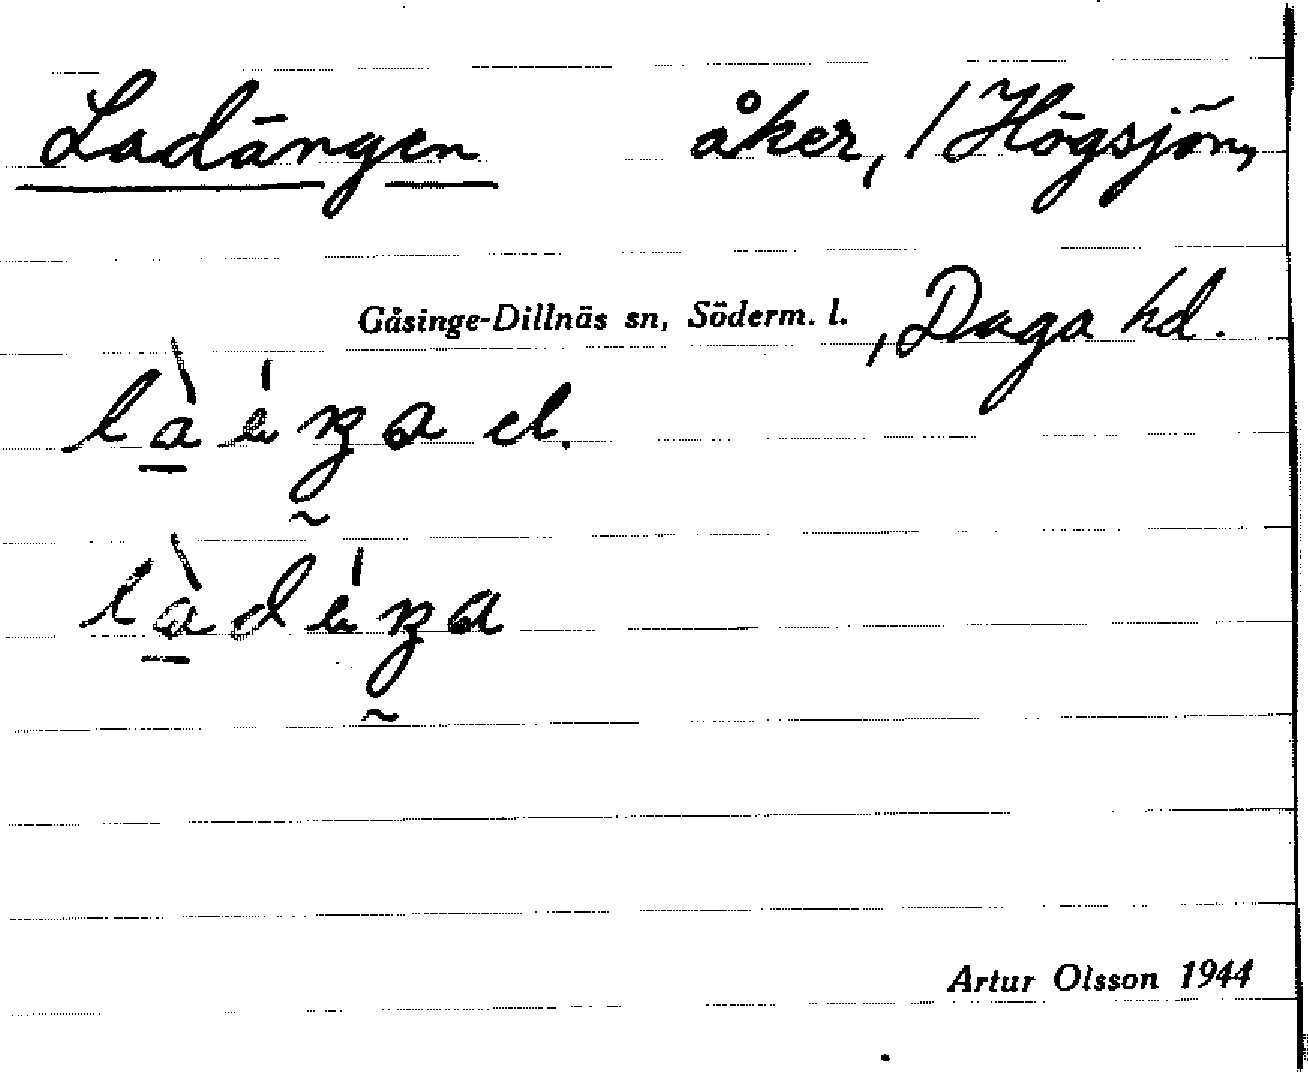 Ladängen åker, /Högsjön,
Gåsinge-Dillnäs sn, Söderm. l. , Daga hd.
el.
Artur Olsson 1944